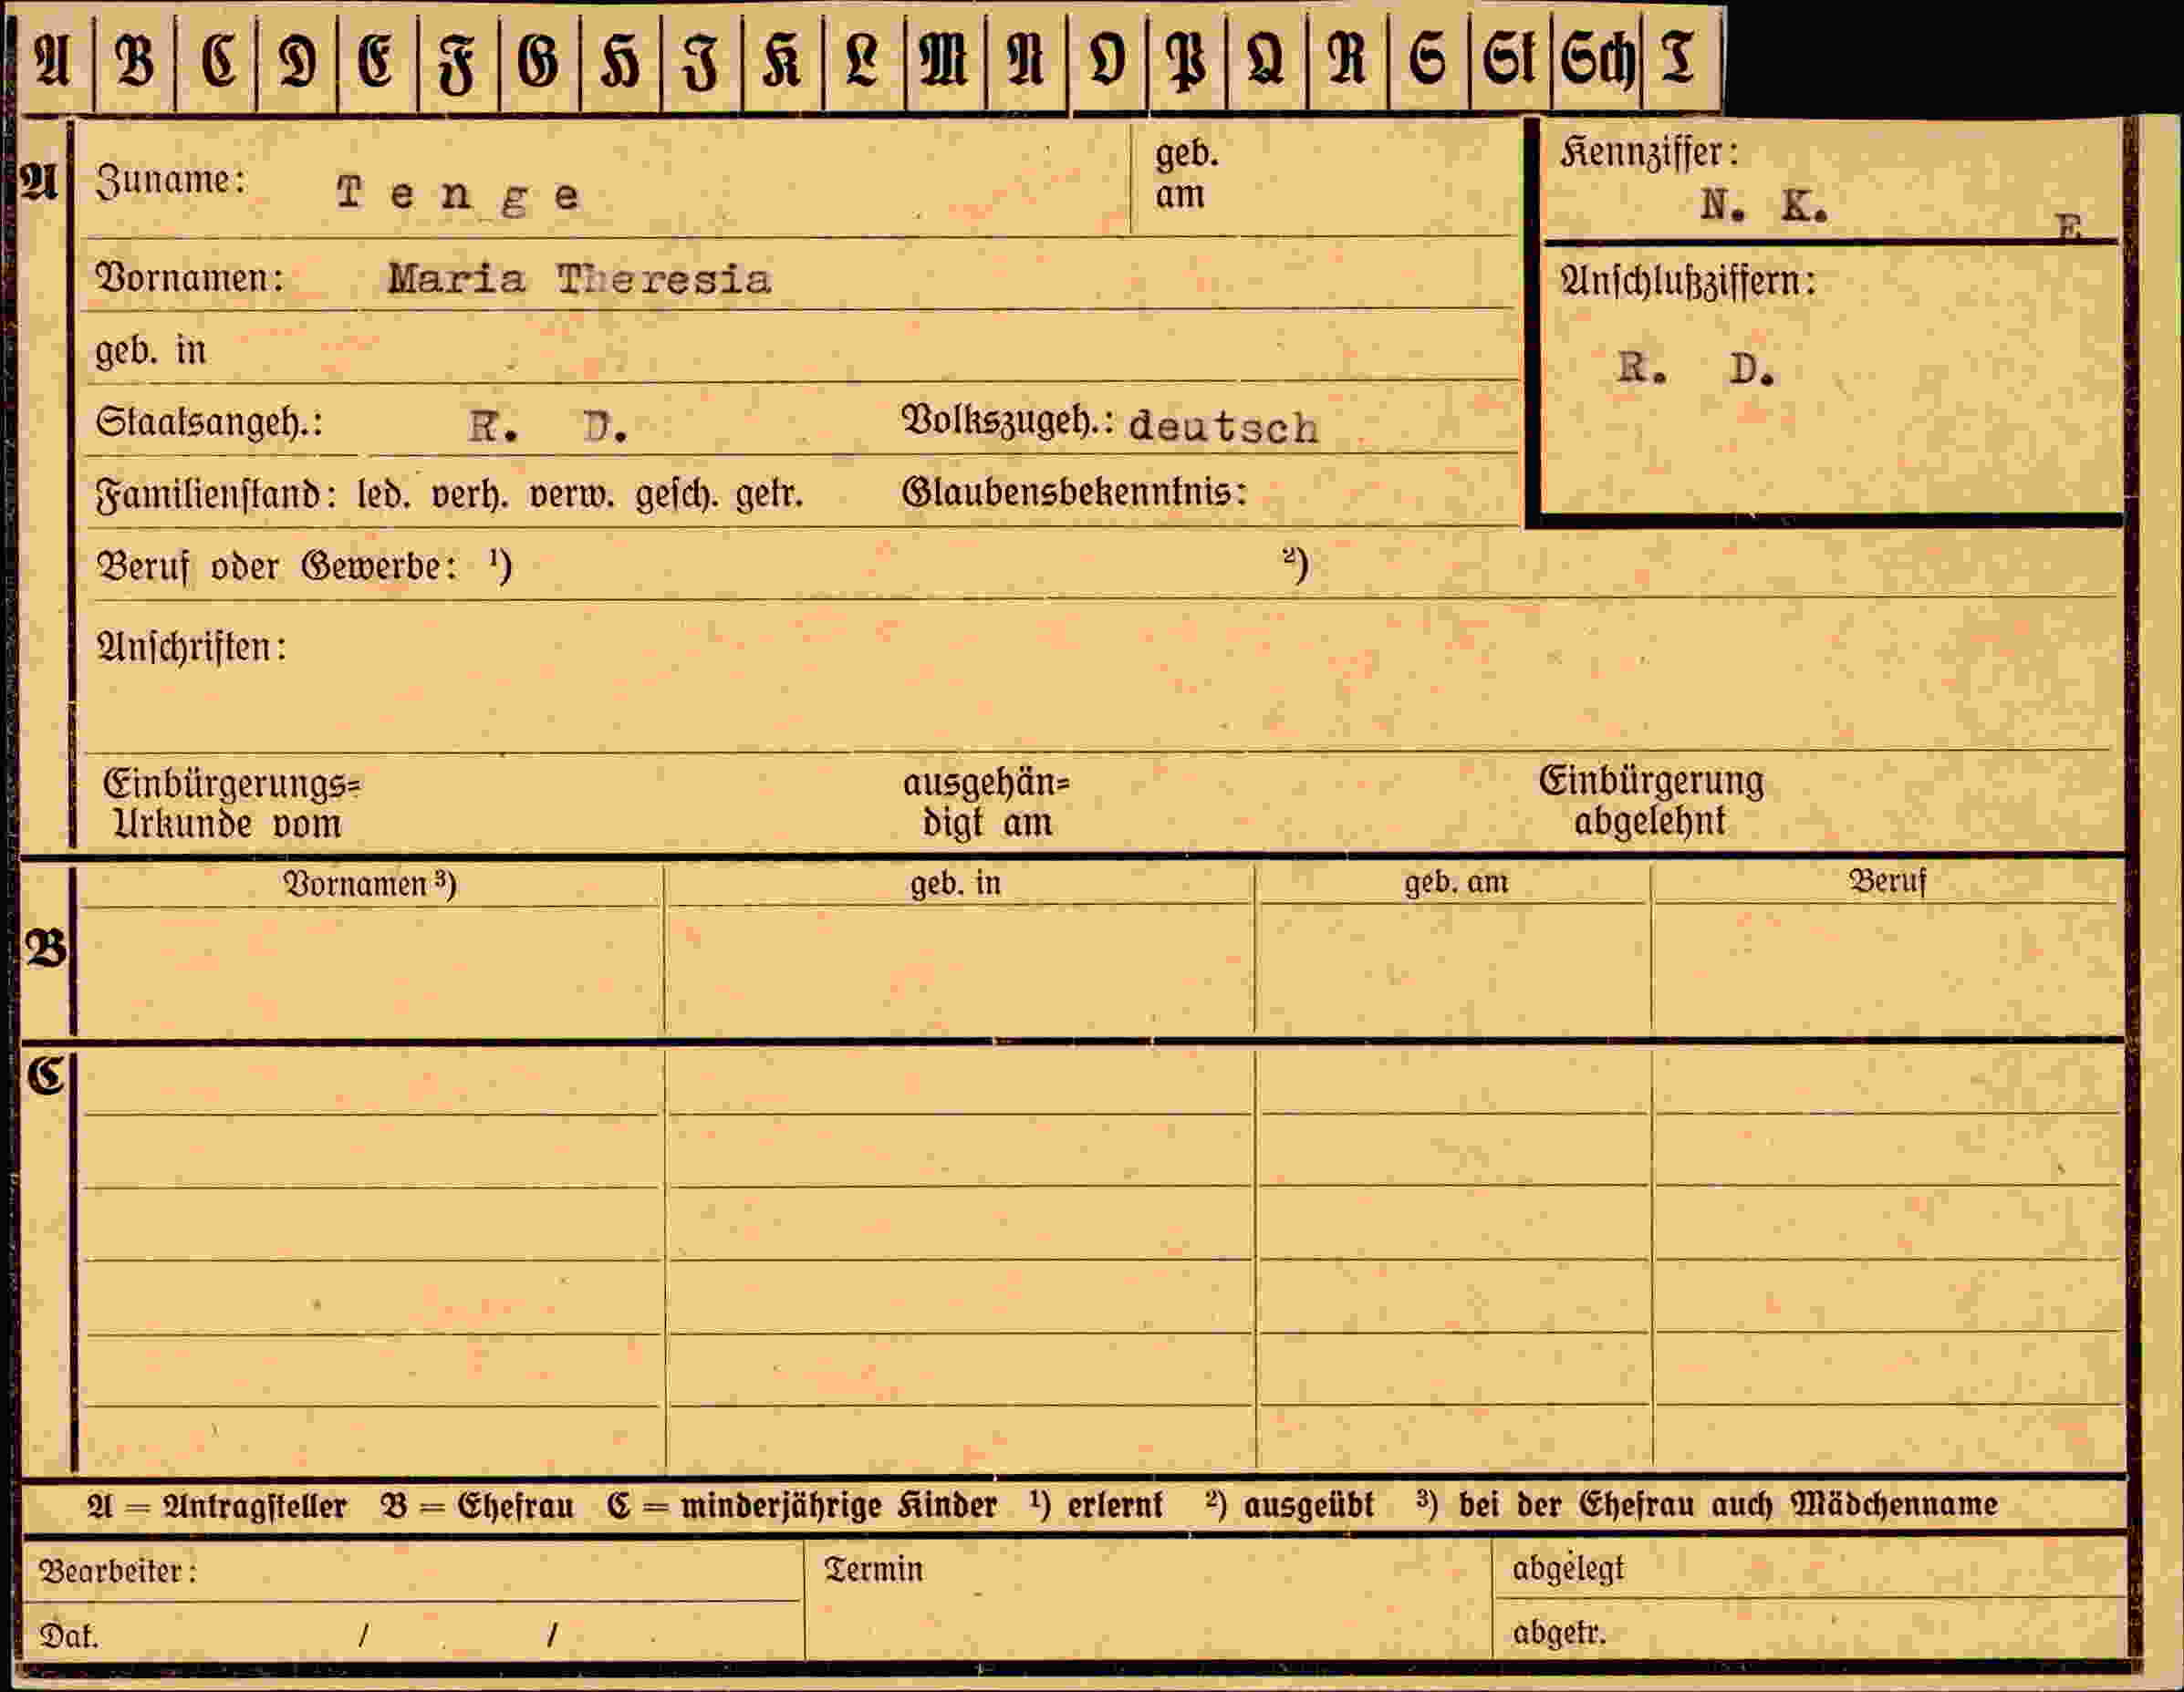 A B C D E F G H I K L M N O P Q R S St Sch T
A Zuname: Tenge geb. am
Kennziffer: N. K. E
Vornamen: Maria Theresia
Anschlußziffern:
geb. in
R. D.
Staatsangeh.: R. D. Volkszugeh.: deutsch
Familienstand: led. verh. verw. gesch. getr. Glaubensbekenntnis:
Beruf oder Gewerbe: ¹) ²)
Anschriften:
Einbürgerungs= ausgehän= Einbürgerung
Urkunde vom digt am abgelehnt
Vornamen ³) geb. in geb. am Beruf
B
C
A = Antragsteller B = Ehefrau C = minderjährige Kinder ¹) erlernt ²) ausgeübt ³) bei der Ehefrau auch Mädchenname
Bearbeiter: Termin abgelegt
Dat. / / abgetr.